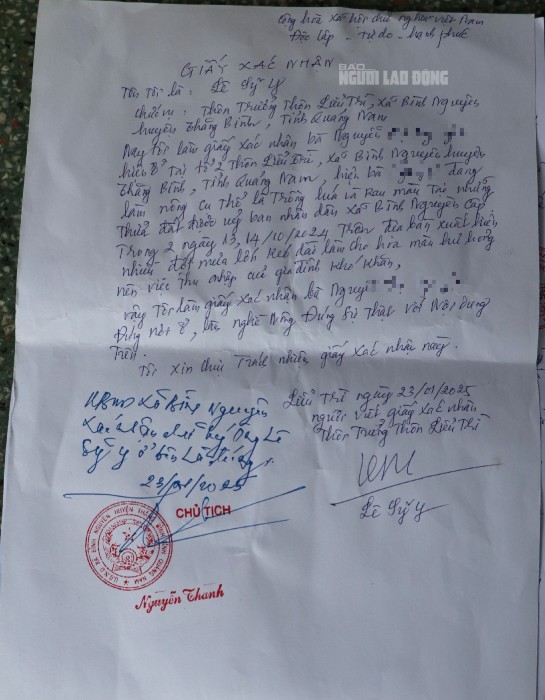 Cộng hòa xã hội chủ nghĩa Việt Nam
Độc lập - Tự do - hạnh phúc
GIẤY XÁC NHẬN
BÁO
NGƯỜI LAO ĐỘNG
Tên tôi là: Lê Sỹ Ý
chức vụ: Thôn Trưởng Thôn Liễu Trì, Xã Bình Nguyên
huyện Thăng Bình, Tỉnh Quảng Nam
Nay tôi làm giấy xác nhận bà Nguyễn
hiện ở tại tổ 2 thôn Liễu Trì, xã Bình Nguyên huyện
Thăng Bình, Tỉnh Quảng Nam, hiện bà đang
làm nông cụ thể là Trồng lúa và Rau màu Tại những
thửa đất được uỷ ban nhân dân xã Bình Nguyên cấp
Trong 2 ngày 13, 14/10/2024 Trên địa bàn xuất hiện
nhiều đợt mưa lớn kéo dài làm cho hoa màu hư hỏng
nên việc thu nhập của gia đình khó khăn,
vậy Tôi làm giấy xác nhận bà Nguyễn
Đúng nơi ở, làm nghề Nông Đúng sự thật với Nội dung
trên.
Tôi xin chịu trách nhiệm giấy xác nhận này.
Liễu Trì ngày 23/01/2025
người viết giấy xác nhận
Thôn Trưởng Thôn Liễu Trì
Lê Sỹ Ý
UBND xã Bình Nguyên
Xác nhận chữ ký ông Lê
Sỹ Ý ở bên là đúng.
23/01/2025
CHỦ TỊCH
U.B.N.D XÃ BÌNH NGUYÊN HUYỆN THĂNG BÌNH TỈNH QUẢNG NAM
Nguyễn Thanh